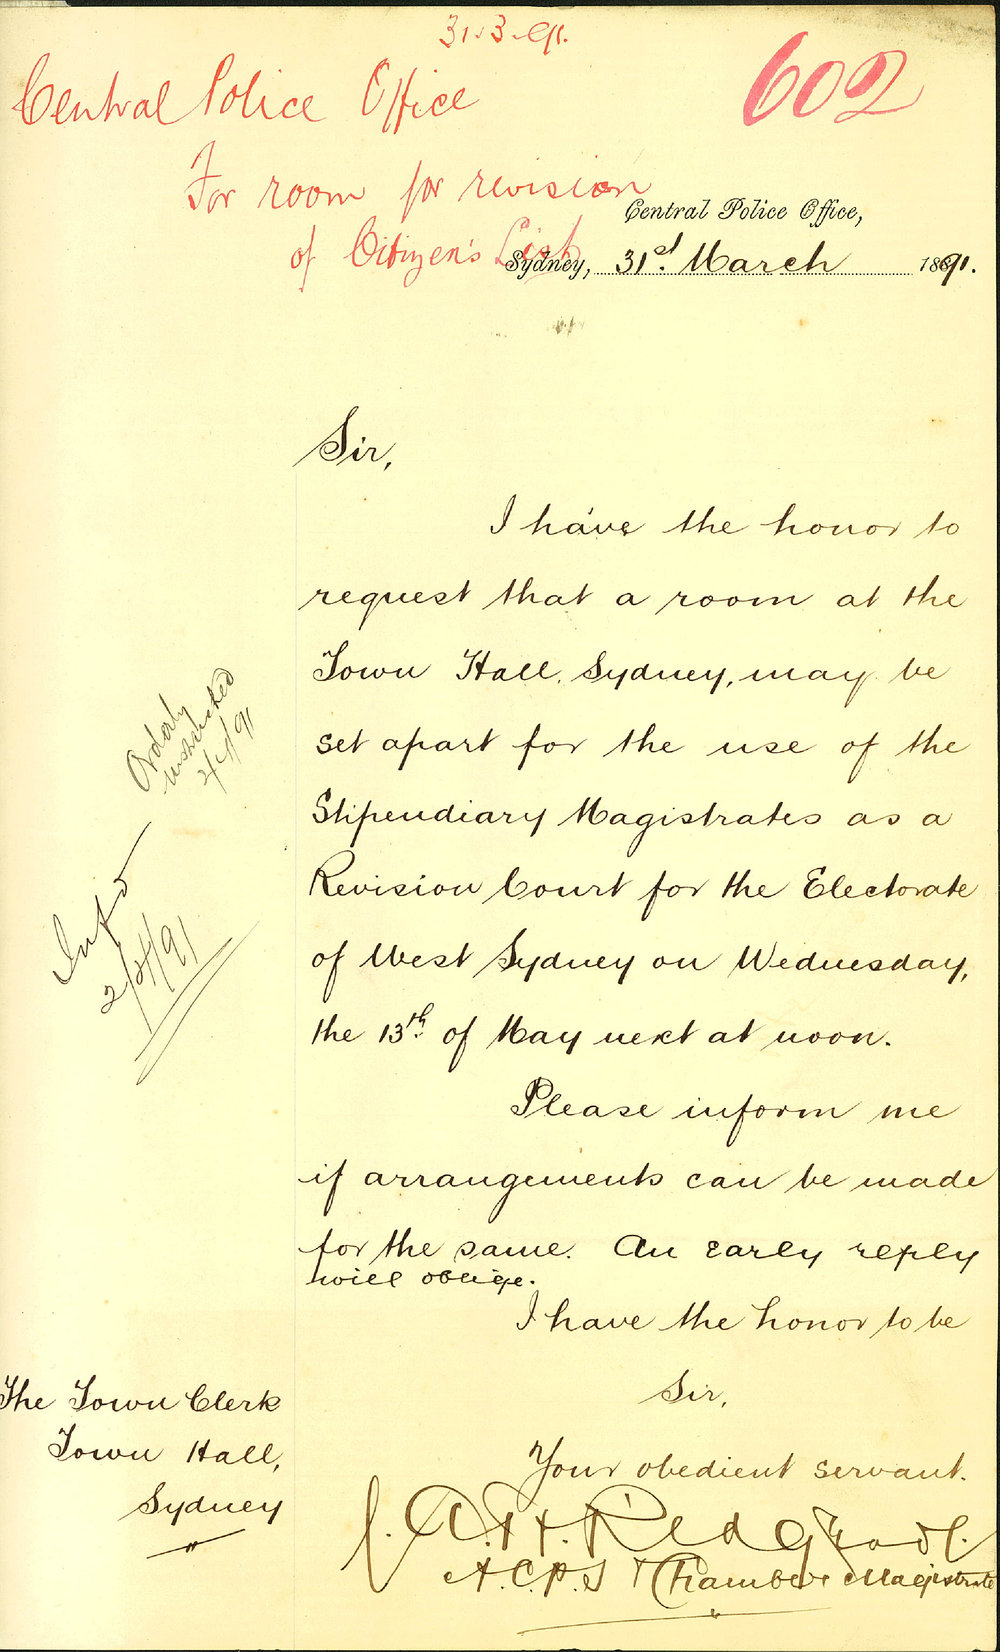 31.3.91.
602
Central Police Office
For room for revision
of Citizen's List
Central Police Office,
Sydney, 31st. March 1891.
Sir,
I have the honor to
request that a room at the
Town Hall, Sydney, may be
set apart for the use of the
Stipendiary Magistrates as a
Revision Court for the Electorate
of West Sydney on Wednesday,
the 13th. of May next at noon.
Please inform me
if arrangements can be made
for the same. An early reply
will oblige.
I have the honor to be
Sir,
Your obedient servant.
Redgrove.
A.C.P.S Chamber Magistrate
Orderly
instructed
2/4/91
Infd
2/4/91
The Town Clerk
Town Hall,
Sydney